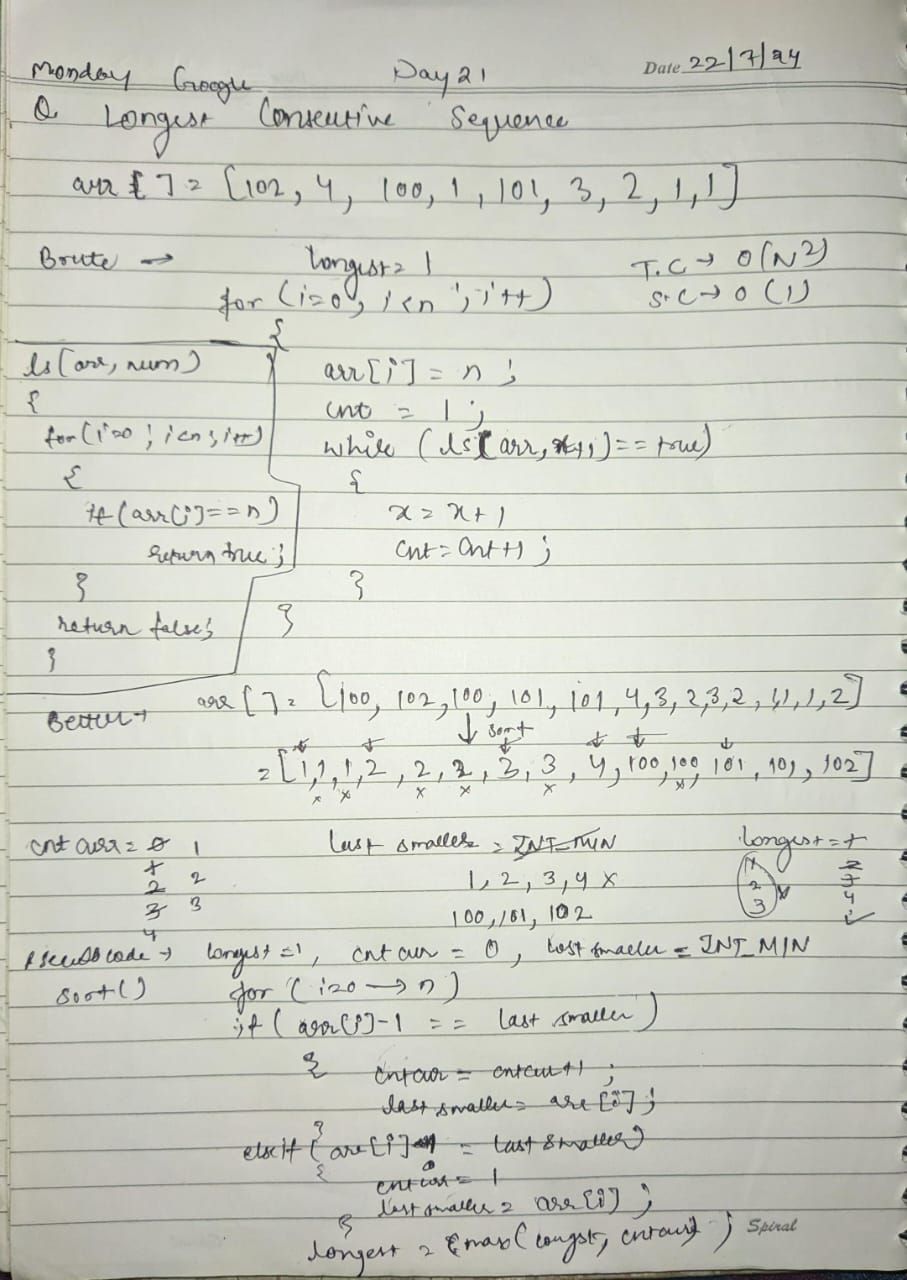 Monday Google Day 21 Date 22/7/24
Q Longest Consecutive Sequence
arr [ ] = [102, 4, 100, 1, 101, 3, 2, 1, 1]
Brute → longest = 1 T.C → O(N²)
for (i=0; i<n; i++) S.C → O(1)
{
ls(arr, num) arr[i] = n;
{ cnt = 1;
for(i=0; i<n; i++) while (ls(arr, x+1) == true)
{ {
if (arr[i]==n) x = x+1
return true; cnt = cnt+1;
} }
return false; }
}
Better → arr [ ] = [100, 102, 100, 101, 101, 4, 3, 2, 3, 2, 1, 1, 1, 2]
↓ sort
= [1, 1, 1, 2, 2, 2, 3, 3, 4, 100, 100, 101, 101, 102]
x x x x x x
cnt curr = 0 1 last smaller = INT_MIN longest = 1
1 2 1, 2, 3, 4 x 1 2
2 3 100, 101, 102 2 3
3 3 4
4
Pseudocode → longest = 1, cnt curr = 0, last smaller = INT_MIN
sort() for (i=0 → n)
if (arr[i]-1 == last smaller)
{ cntcurr = cntcur+1;
last smaller = arr[i];
}
else if (arr[i] = last smaller)
{ cntcur = 1
last smaller = arr[i];
}
longest = max(longst, cntcur);
Spiral